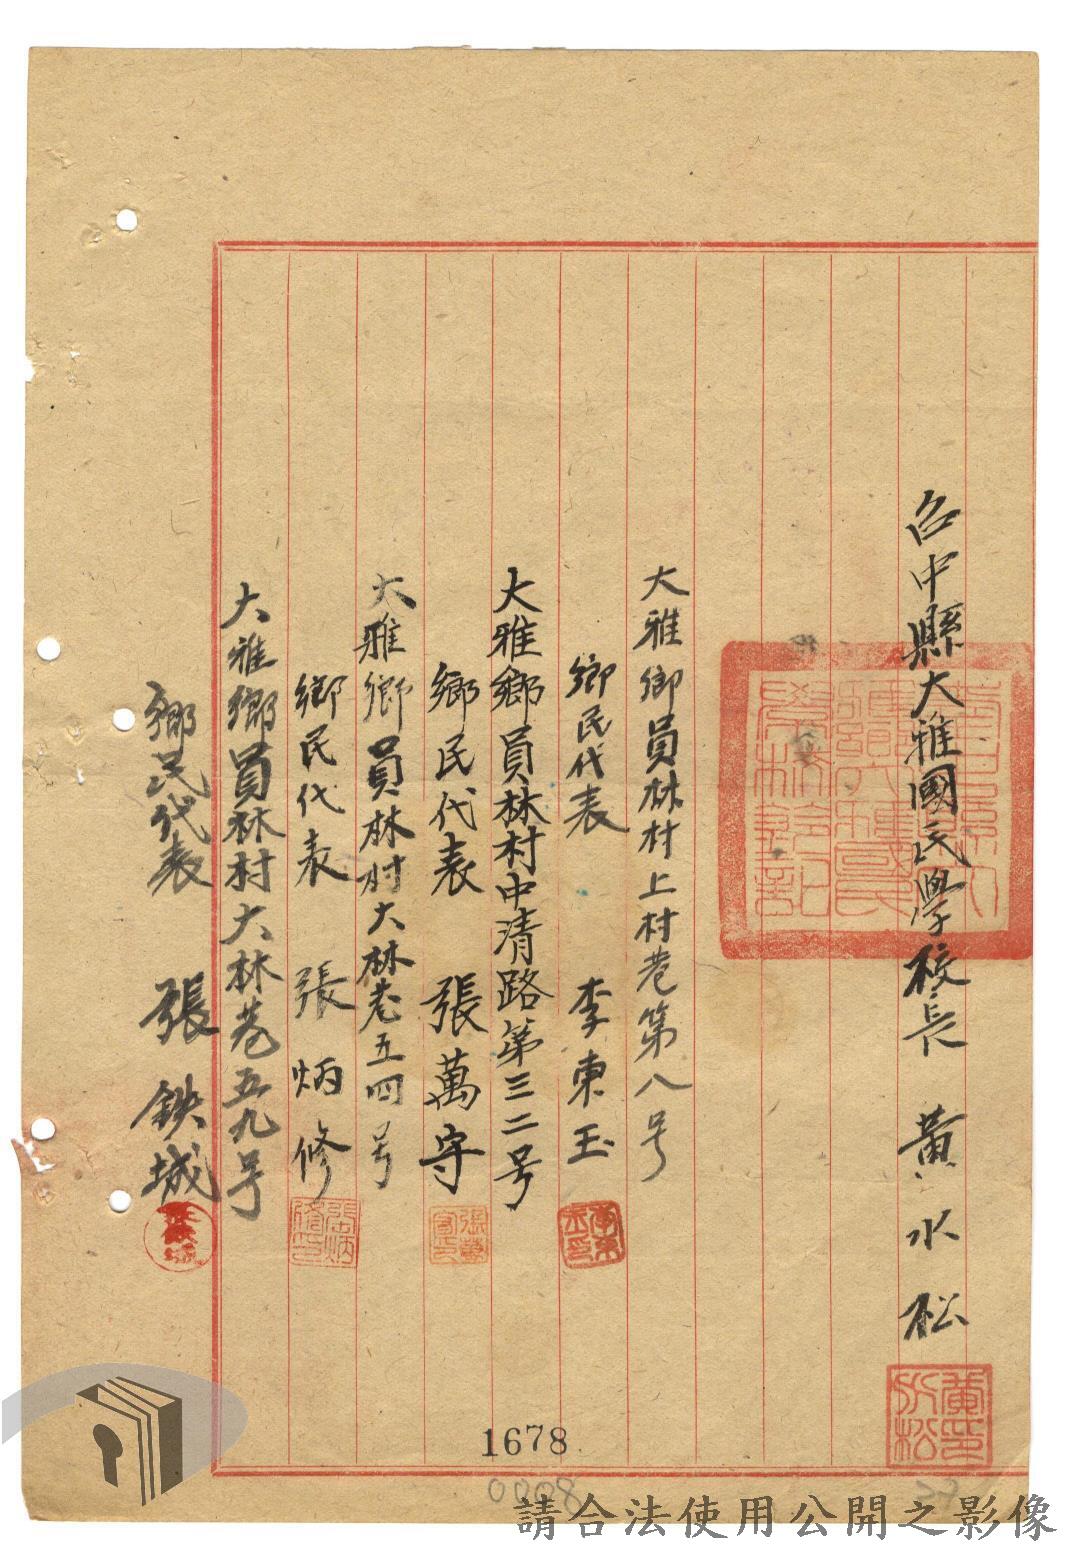 台中縣大雅國民學校長 黃水松
黃水松印
大雅鄉員林村上村巷第八号
鄉民代表 李東玉
李東玉印
大雅鄉員林村中清路第三二号
鄉民代表 張萬守
張萬守印
大雅鄉員林村大林巷五四号
鄉民代表 張炳修
張炳修印
大雅鄉員林村大林巷五九号
鄉民代表 張鉄城
1678
0008
請合法使用公開之影像